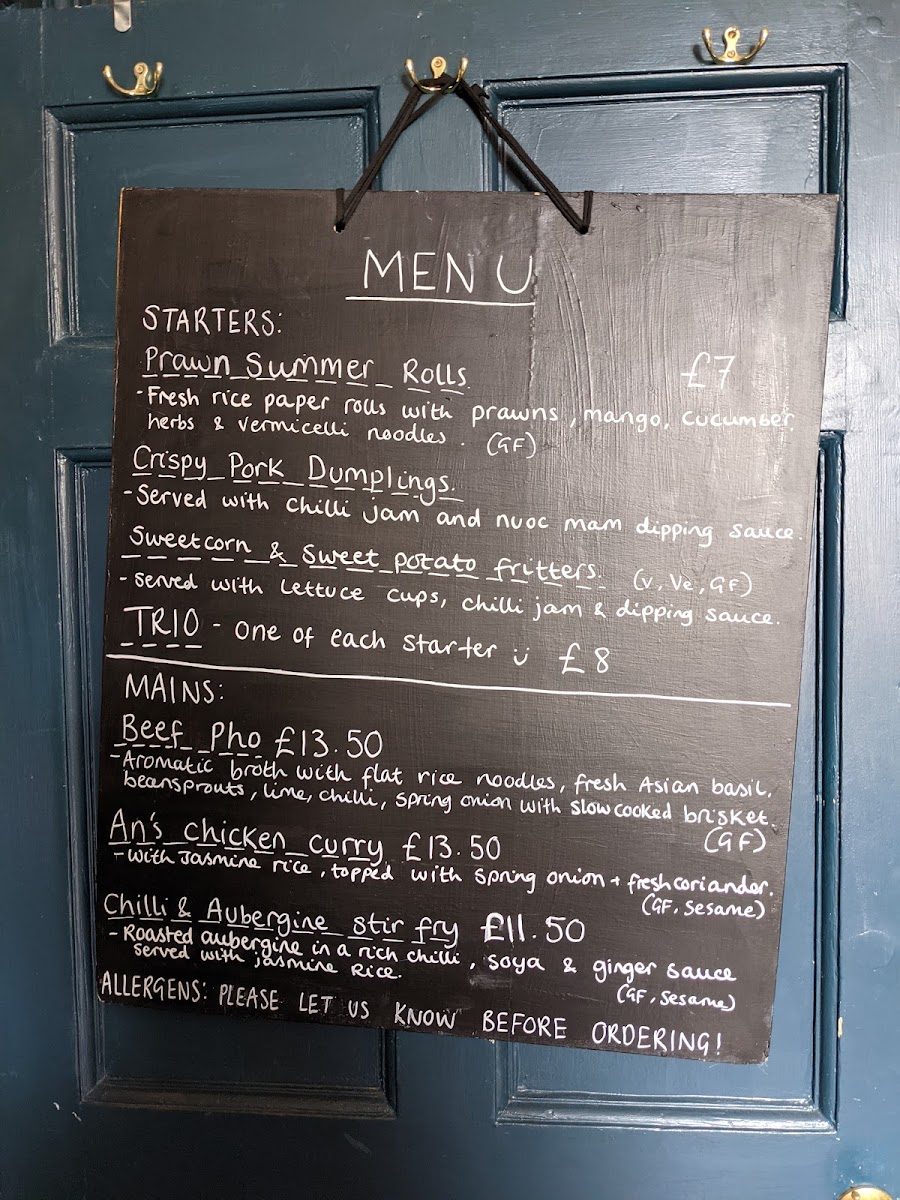 MENU
STARTERS:
Prawn Summer Rolls £7
- Fresh rice paper rolls with prawns, mango, cucumber,
herbs & vermicelli noodles. (GF)
Crispy Pork Dumplings.
- Served with chilli jam and nuoc mam dipping sauce.
Sweetcorn & Sweet potato fritters. (V, Ve, GF)
- Served with lettuce cups, chilli jam & dipping sauce.
TRIO - one of each starter :) £8
MAINS:
Beef Pho £13.50
- Aromatic broth with flat rice noodles, fresh Asian basil,
beansprouts, lime, chilli, spring onion with slow cooked brisket.
(GF)
An's chicken curry £13.50
- with Jasmine rice, topped with spring onion + fresh coriander.
(GF, Sesame)
Chilli & Aubergine stir fry £11.50
- Roasted aubergine in a rich chilli, soya & ginger sauce
served with jasmine Rice.
(GF, Sesame)
ALLERGENS: PLEASE LET US KNOW BEFORE ORDERING!